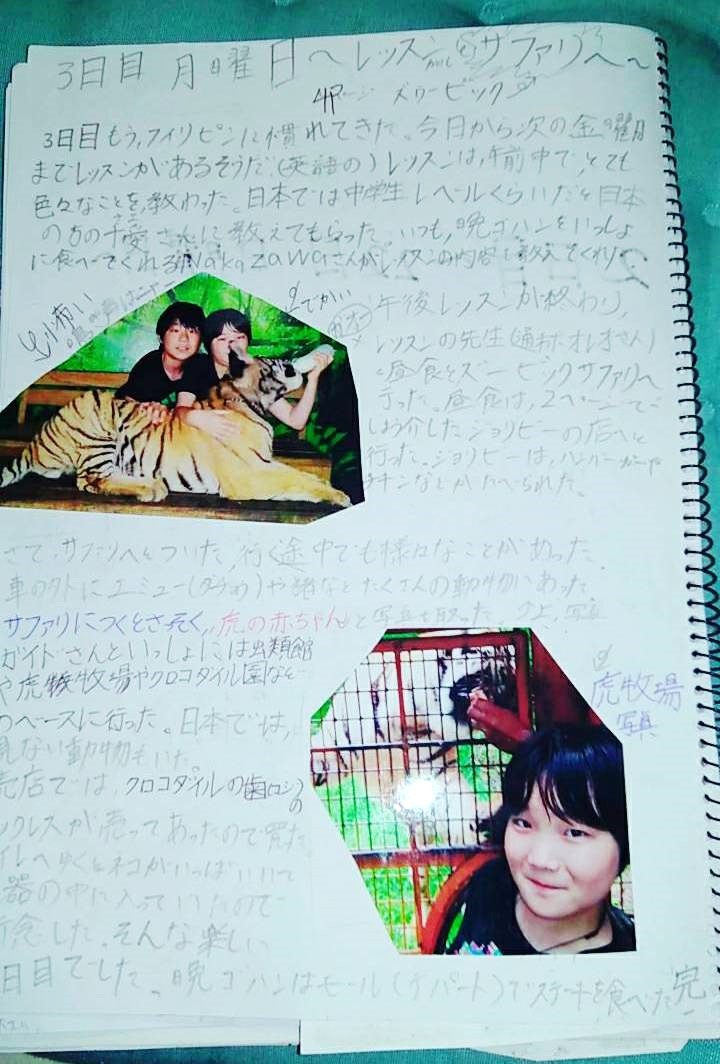 3日目 月曜日〜レッスン&サファリへ〜
4ページ ズゥービック
3日目もう,フィリピンに慣れてきた。今日から次の金曜日
までレッスンがあるそうだ(英語の)レッスンは,午前中で,とても
色々なことを,教わった。日本では中学生レベルくらいだと日本
の方の千愛さんに教えてもらった。いつも,晩ゴハンをいっしょ
に食べてくれるNakazawaさんがレッスンの内容を教えてくれ
でかい
午後レッスンが終わり
レッスンの先生
昼食とズービックサファリへ
行った。昼食は,2ページで
しょう介したジョリビーの店へと
行った。ジョリビーは,ハンバーガーや
チキンなどが
さて,サファリへとついた,行く途中でも様々なことがあった。
車の外にエミュー(ダチョウ)や猪などたくさんの動物が
サファリにつくとさっそく,,虎の赤ちゃん,,と写真を取った。
ガイドさんといっしょには虫類館
や虎牧場やクロコダイル園など
のペースに行った。日本では,
見ない動物もいた
虎牧場
写真
売店では,クロコダイルの歯
の
ックレスが売ってあったので買た
イレへゆくとネコがいっぱいいて
器の中に入っていたので
断念した。そんな楽しい
日目でした。晩ゴハンはモール(デパート)でステーキを食べた 完